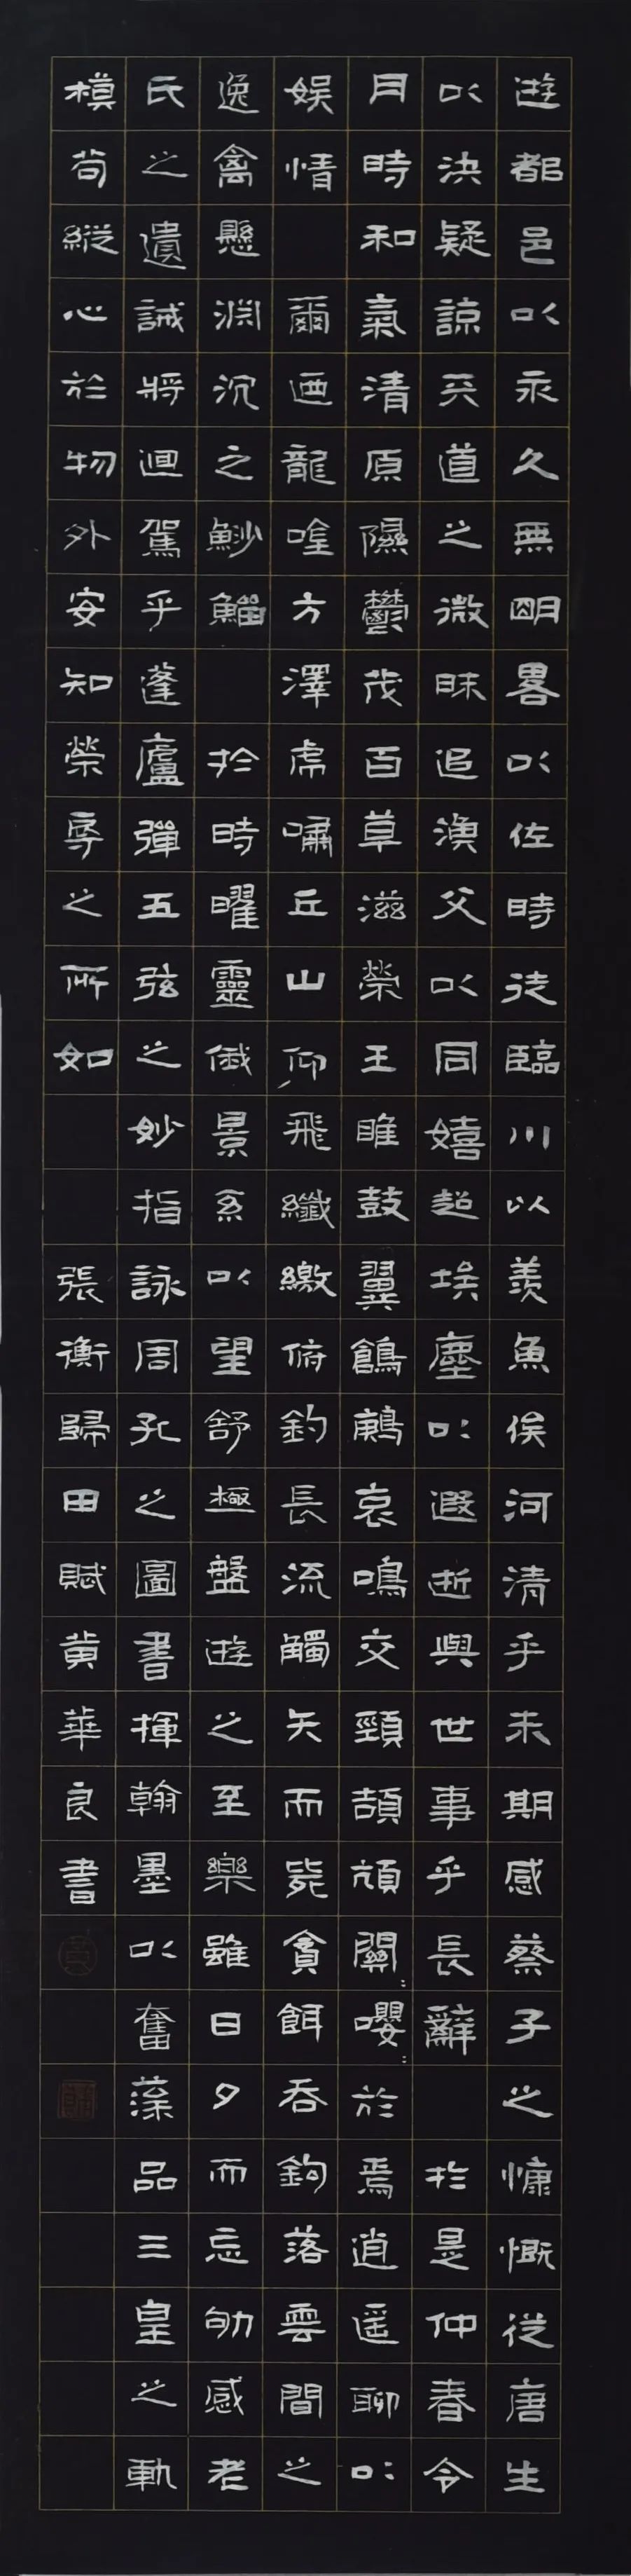 遊都邑以永久無明畧以佐時徒臨川以羨魚俟河清乎未期感蔡子之慷慨從唐生
以決疑諒天道之微昧追漁父以同嬉超埃塵以遐逝與世事乎長辭 於是仲春令
月時和氣清原隰鬱茂百草滋榮王雎鼓翼鶬鶊哀鳴交頸頡頏關:嚶:於焉逍遥聊以
娛情 爾迺龍吟方澤虎嘯丘山仰飛纖繳俯釣長流觸矢而斃貪餌吞鉤落雲間之
逸禽懸淵沉之魦鰡 於時曜靈俄景系以望舒極盤遊之至樂雖日夕而忘劬感老
氏之遺誡將迴駕乎蓬廬彈五弦之妙指詠周孔之圖書揮翰墨以奮藻品三皇之軌
模苟縱心於物外安知榮辱之所如 張衡歸田賦黄華良書